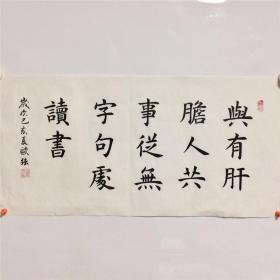 與有肝
膽人共
事從無
字句處
讀書
歲次己亥夏